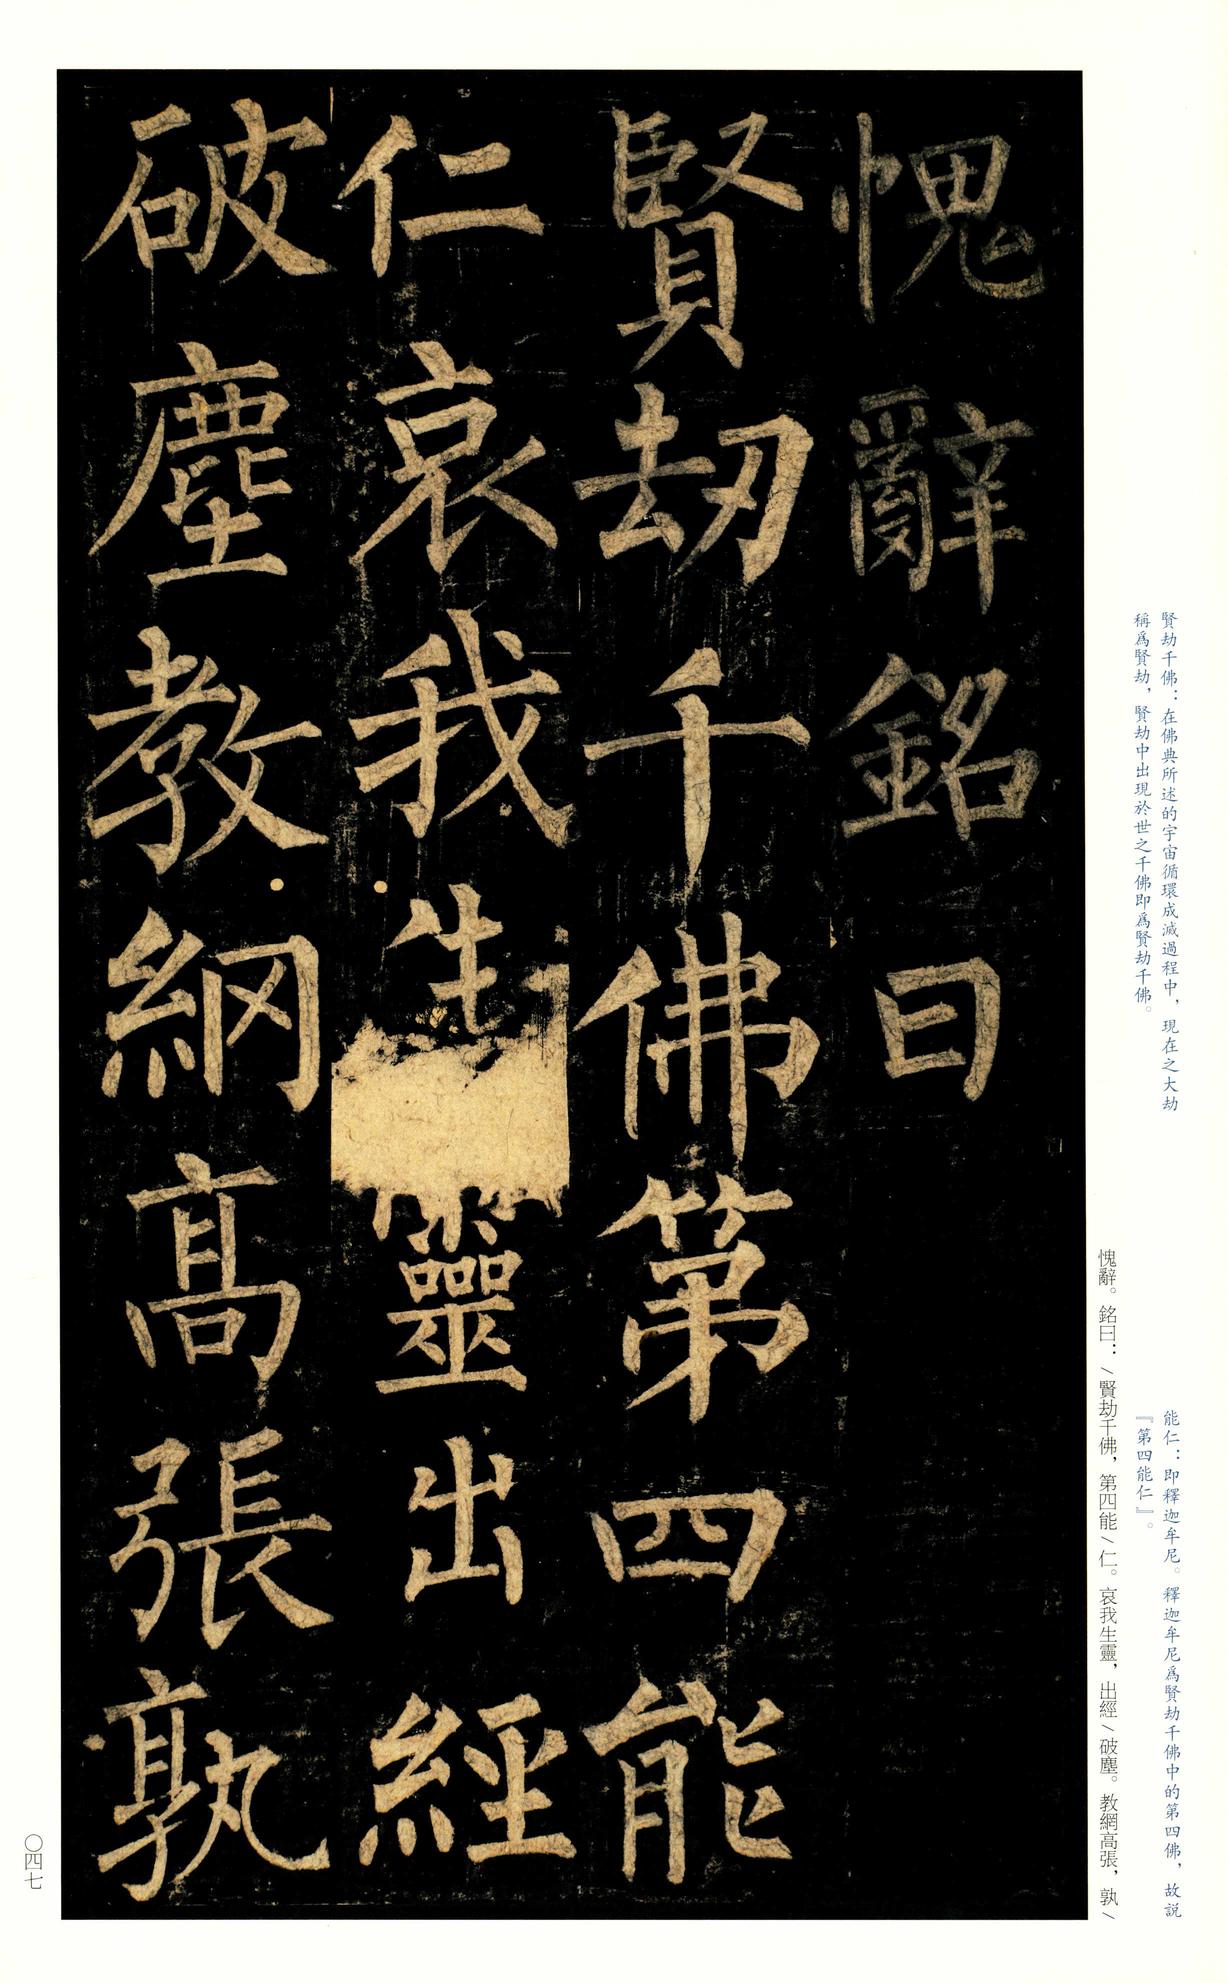 賢劫千佛：在佛典所述的宇宙循環成滅過程中，現在之大劫
稱爲賢劫，賢劫中出現於世之千佛即爲賢劫千佛。
能仁：即釋迦牟尼。釋迦牟尼爲賢劫千佛中的第四佛，故說
『第四能仁』。
愧辭。銘曰：\賢劫千佛，第四能\仁。哀我生靈，出經\破塵。教網高張，孰\
愧辭銘曰
賢劫千佛第四能
仁哀我生靈出經
破塵教網高張孰
〇四七